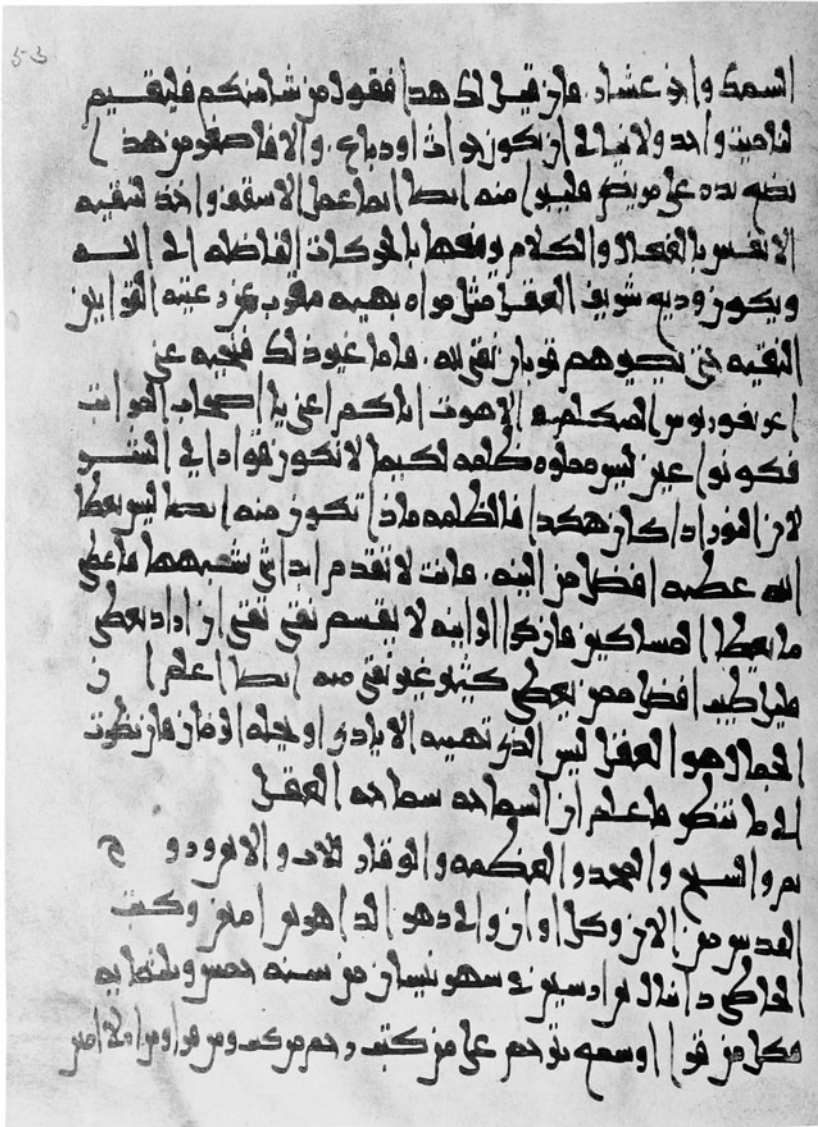 السمك واخذ عشاه. فان قيل لك هذا فقول من شا منكم فليقيم
لنا ميت واحد ولا نبالي ان يكون حراث او دباغ. والا فاصغر من هذا
يضع يده على مريض فليبرا منه ايضا انما عمل الاسقف واخذ لنقيه
الانفس بالفعال والكلام يرفعها بالحركات الفاضله الى الله
ويكون شريف العقل مثل مراه بهيه مقرب عن رعيته القرابين
النقيه حتى يصيرهم قربان نقي لله. فاما غير ذلك فنحيه عني
اغريغوريوس الاهوت اياكم اعني يا اصحاب
فكونوا عين ليس مملوه ظلمه لكيما لا تكون قواد الي الشر
لان النور اذا كان هكذا فالظلمه ماذا تكون منه ايضا ليس يعطا
الله عطيه افضل من النيه. فانت لا تقدم ابدا شي فاعطي
ما يعطا المساكين فان كرا الزانيه لا يقسم نقي نقي ان اراد يعطي
قليل طيب افضل ممن يعطي كثير غير نقي منه ايضا اعلم ان
الجمال هو العقل ليس الذي تهييه الايادي او يحله الزمان فان نظرت
الي ما تنظر فاعلم ان السماجه سماجه العقل
تم والسبح والمجد والعظمه والوقار للاب والابن وروح
القدس من الان وكل اوان والى دهر الداهرين امين وكتب
الخاطي في شهر نيسان من سنه خمس وثلثمايه
فكل من قرا او سمع ترحم على من كتب رحم من كتب ومن قرا ومن قال امين